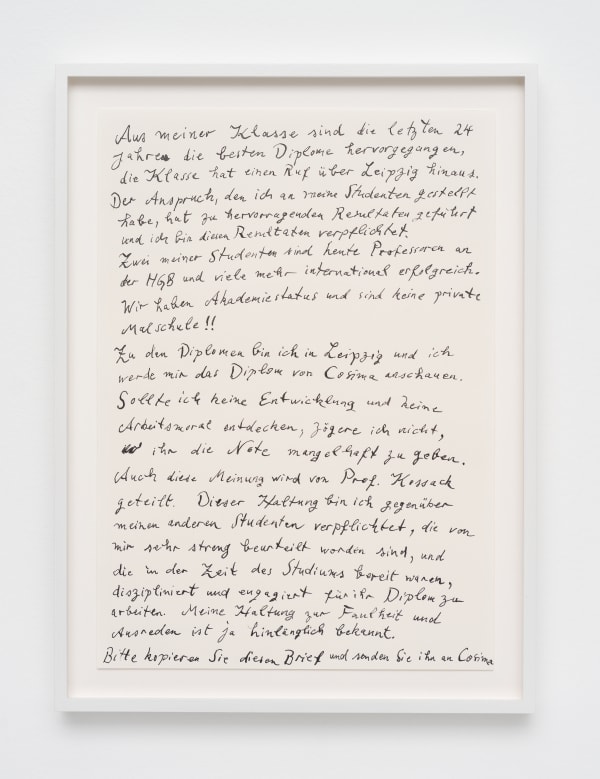 Aus meiner Klasse sind die letzten 24
Jahren die besten Diplome hervorgegangen,
die Klasse hat einen Ruf über Leipzig hinaus.
Der Anspruch, den ich an meine Studenten gestellt
habe, hat zu hervorragenden Resultaten geführt
und ich bin diesen Resultaten verpflichtet.
Zwei meiner Studenten sind heute Professoren an
der HGB und viele mehr international erfolgreich.
Wir haben Akademiestatus und sind keine private
Malschule!!
Zu den Diplomen bin ich in Leipzig und ich
werde mir das Diplom von Cosima anschauen.
Sollte ich keine Entwicklung und keine
Arbeitsmoral entdecken, zögere ich nicht,
ihr die Note mangelhaft zu geben.
Auch diese Meinung wird von Prof. Kossack
geteilt. Dieser Haltung bin ich gegenüber
meinen anderen Studenten verpflichtet, die von
mir sehr streng beurteilt worden sind, und
die in der Zeit des Studiums bereit waren,
diszipliniert und engagiert für ihr Diplom zu
arbeiten. Meine Haltung zur Faulheit und
Ausreden ist ja hinlänglich bekannt.
Bitte kopieren Sie diesen Brief und senden Sie ihn an Cosima